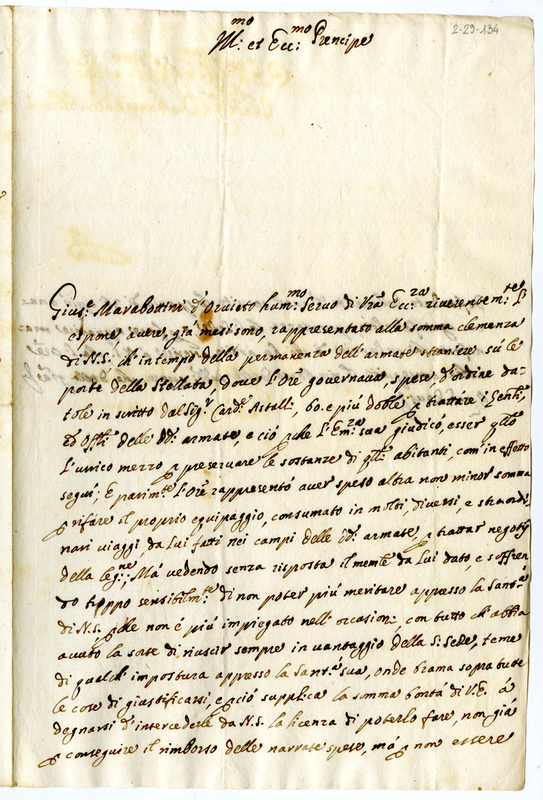 2-29-134
Ill.mo et Ecc.mo Prencipe
Gius.e Marabottini d'Orvieto hum.mo Servo di Vra Ecc.za riverentem.te L'
espone, avere, già mesi sono, rappresentato alla somma clemenza
di N.S. ch'in tempo della permanenza dell'armate straniere sù le
porte della Stellata, dove l'Ore governava, spese d'ordine da-
tole in scritto dal Sig.r Card. Astalli, 60. e più doble p trattare i Gentil.
ed Off.li delle dd. armate, e ciò pche l'Em.za sua giudicò, esser qllo
l'unico mezzo p preservare le sostanze di qli abitanti, com'in effetto
seguì; E parim.te l'Ore rappresentò aver speso altra non minor somma
p rifare il proprio equipaggio, consumato in molti diversi, e straordi-
nari viaggi da Lui fatti nei campi delle dd. armate, p trattar negotij
della Leg.ne; Mà vedendo senza risposta il memle da Lui dato, e soffren-
do troppo sensibilm.te di non poter più meritare appresso la Sant.à
di N.S. pche non è più impiegato nell'occasioni, con tutto ch'abbia
avuto la sorte di riuscir sempre in vantaggio della S. Sede, teme
di qualch'impostura appresso la Sant.à sua, onde brama sopra tutte
le cose di giustificarsi, e p ciò supplica la somma bontà di V.E. à
degnarsi d'intercederle da N.S. la licenza di poterlo fare, non già
p conseguire il rimborso delle narrate spese, mà p non essere